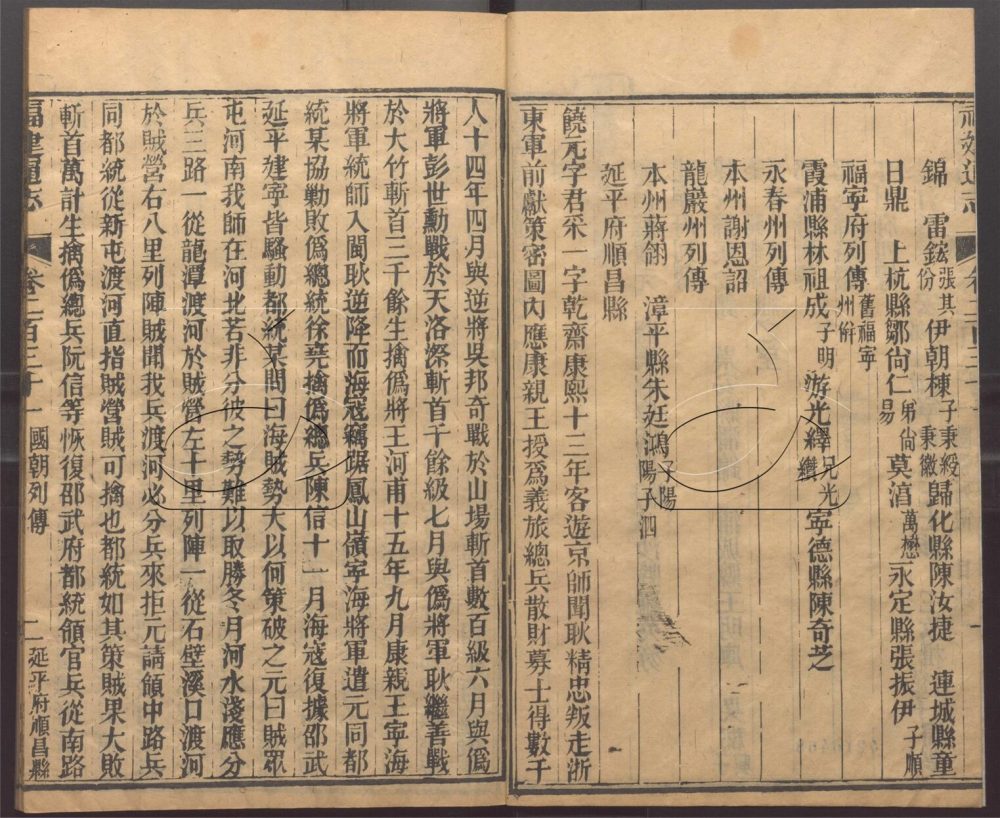 錦　雷鋐張其份　伊朝棟子秉綬秉徽　歸化縣陳汝捷　連城縣童
日鼎　上杭縣鄒尚仁弟尚易　莫滈萬懋　永定縣張振伊子順
福寧府列傳舊福寧州俯
霞浦縣林祖成子明　游光繹兄光纘　寧德縣陳奇芝
永春州列傳
本州謝恩詔
龍巖州列傳
本州蔣翎　漳平縣朱廷鴻子陽陽子泗
延平府順昌縣
饒元字君采一字乾齋康熙十三年客遊京師聞耿精忠叛走浙
東軍前獻策密圖內應康親王授爲義旅總兵散財募士得數千
人十四年四月與逆將吳邦奇戰於山場斬首數百級六月與僞
將軍彭世勳戰於天洛漈斬首千餘級七月與僞將軍耿繼善戰
於大竹斬首三千餘生擒僞將王河甫十五年九月康親王寧海
將軍統師入閩耿逆降而海寇竊踞鳳山嶺寧海將軍遣元同都
統某協勦敗僞總統徐堯擒僞總兵陳信十一月海寇復據邵武
延平建寧皆騷動都統某問曰海賊勢大以何策破之元曰賊眾
屯河南我師在河北若非分彼之勢難以取勝冬月河水淺應分
兵三路一從龍潭渡河於賊營左十里列陣一從石壁溪口渡河
於賊營右八里列陣賊聞我兵渡河必分兵來拒元請領中路兵
同都統從新屯渡河直指賊營賊可擒也都統如其策賊果大敗
斬首萬計生擒僞總兵阮信等恢復邵武府都統領官兵從南路
福建通志　卷二百三十　國朝列傳　二　延平府順昌縣